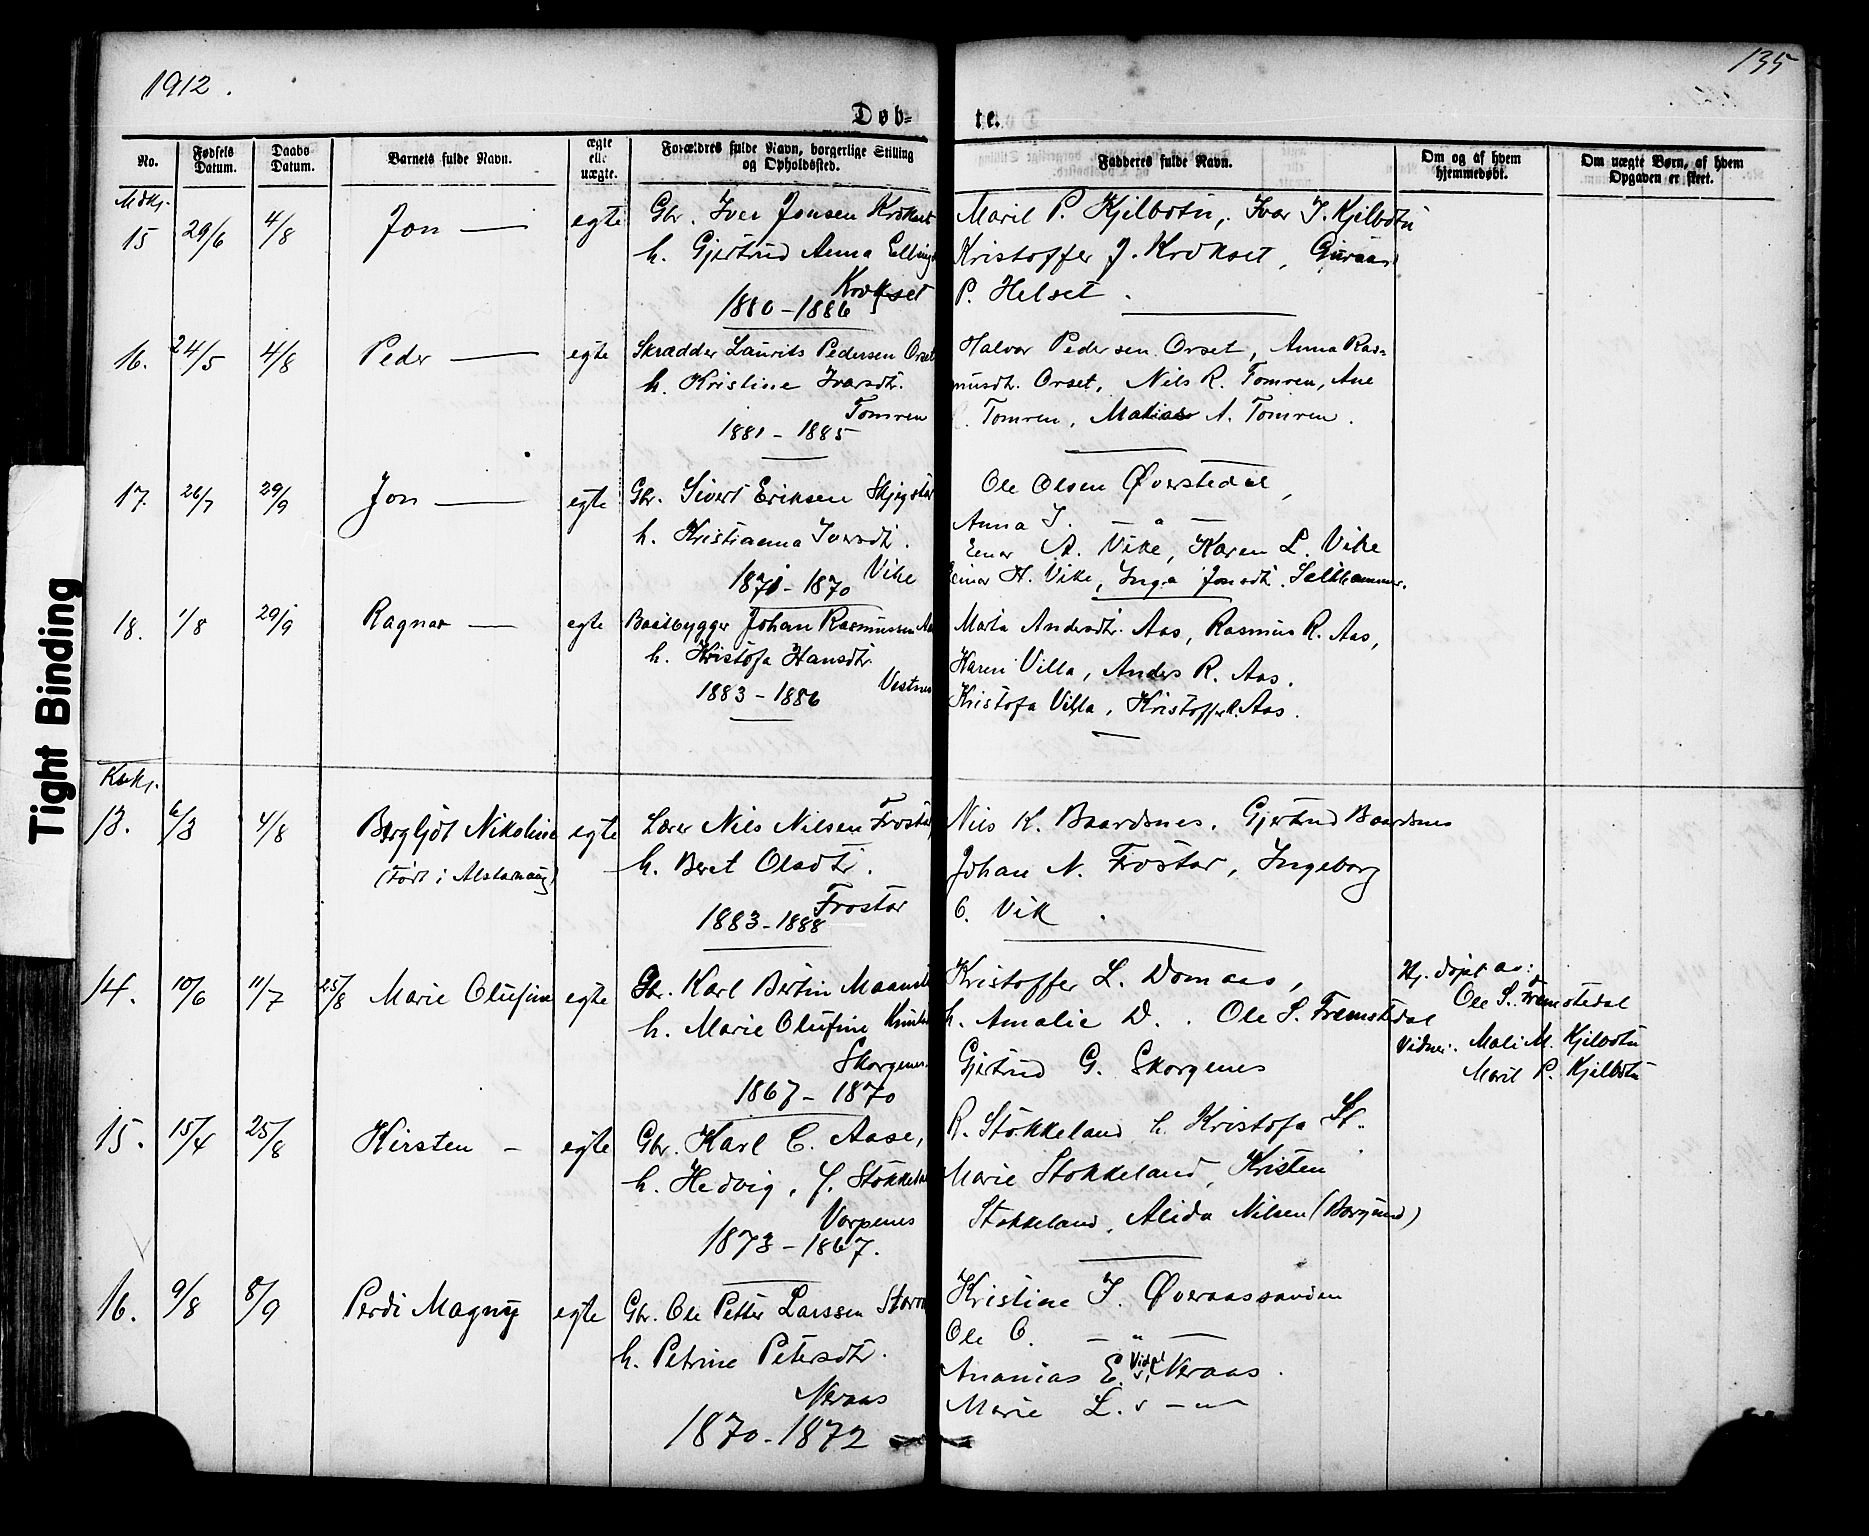 1912.
135
Døb=
te.
No.
Fødsels Datum.
Daabs Datum.
Barnets fulde Navn.
ægte elle uægte.
Forældres fulde Navn, borgerlige Stilling og Opholdssted.
Fadderes fulde Navn.
Om og af hvem hjemmedøbt.
Om uægte Børn, af hvem Opgaven er skeet.
15 29/6 4/8 Jon — egte Gbr. Iver Jonsen Krokset
h. Gjertrud Anna Ellings
Krokset
1880 - 1886
Marit P. Kjelbotn, Ivar J. Kjelbotn
Kristoffer J. Krokset,
P. Helset.
16. 24/5 4/8 Peder — egte Skrædder Laurits Pedersen Orset
h. Kristine Ivarsdtr.
Tomren
1881 - 1885
Halvor Pedersen Orset, Anna Ras=
musdtr. Orset, Nils R. Tomren, Ane
Tomren, Matias A. Tomren.
17. 26/7 29/9 Jon — egte Gbr. Sivert Eriksen Skjegstad
h. Kristianna Iversdtr.
Vike
1871 - 1870
Ole Olsen Øverstedal,
Anna I. — " —
Einar A. Vike, Karen L. Vike
Einar H. Vike, Inga Jonsdtr. Salthammer.
18. 1/8 29/9 Ragnar — egte Baatbygger Johan Rasmussen Aas
h. Kristofa Hansdtr
Vestnes
1883 - 1886
Marta Andersdtr. Aas, Rasmus R. Aas,
Karen Villa, Anders R. Aas.
Kristofa Villa, Kristoffer R. Aas.
13. 6/3 4/8 Bergljot Nikoline egte Lærer Nils Nilsen Frostad
(Født i Alstahaug)
h. Beret Olsdtr.
Frostar
1883 - 1888
Nils K. Baardsnes, Gjertrud Baardsnes
Johan N. Frostar, Ingeborg
O. Vik.
14. 10/6 11/7 25/8 Marie Olufine egte Gbr. Karl Bertin
h. Marie Olufine
Skorgenes.
1867 - 1870
Kristoffer L. Domaas,
h. Amalie D. . Ole S. Fremstedal
Gjertrud G. Skorgenes
Hj. døpt av:
Ole S. Fremstedal
Vidner: Mali M. Kjelbotn
Marit P. Kjelbotn
15. 15/4 25/8 Kirsten - egte Gbr. Karl C. Aase,
h. Hedvig, f. Stokkeland
Vorpenes
1873 - 1867.
R. Stokkeland h. Kristofa St.
Marie Stokkeland, Kristen
Stokkeland, Alida Nilsen (Borgund)
16. 9/8 8/9 Perdi Magny egte Gbr. Ole Petter Larssen
h. Petrine Petersdtr.
Neraas
1870 - 1872
Kristine I. Øveraassanden
Ole O. — " —
Ananias E. Vidal Neraas.
Marie L. v — " —
Tight Binding